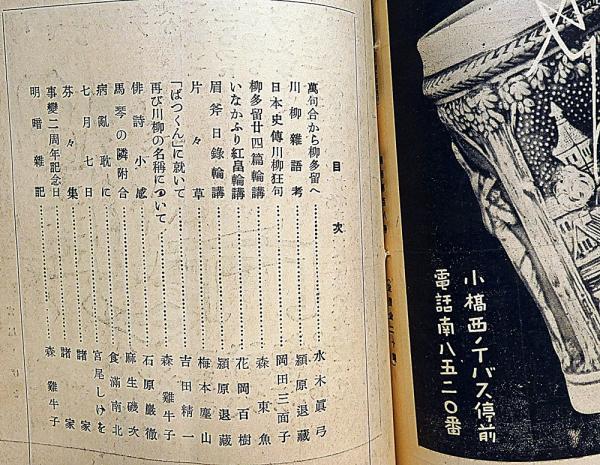 小橋西ノ丁バス停前
電話南八五二〇番
目次
萬句合から柳多留へ……水木眞弓
川柳雜語考……潁原退藏
日本史傳川柳狂句……岡田三面子
柳多留廿四篇輪講……森東魚
いなかふり紅畠輪講……花岡百樹
眉斧日錄輪講……潁原退藏
片々草……梅本塵山
「ばつくん」に就いて……吉田精一
再び川柳の名稱について……森雞牛子
俳詩小感……石原巖徹
馬琴の隣附合……麻生磯次
病亂歌に……食滿南北
七月七日……宮尾しげを
芬々集……諸家
事變二周年記念日……諸家
明暗雜記……森雞牛子